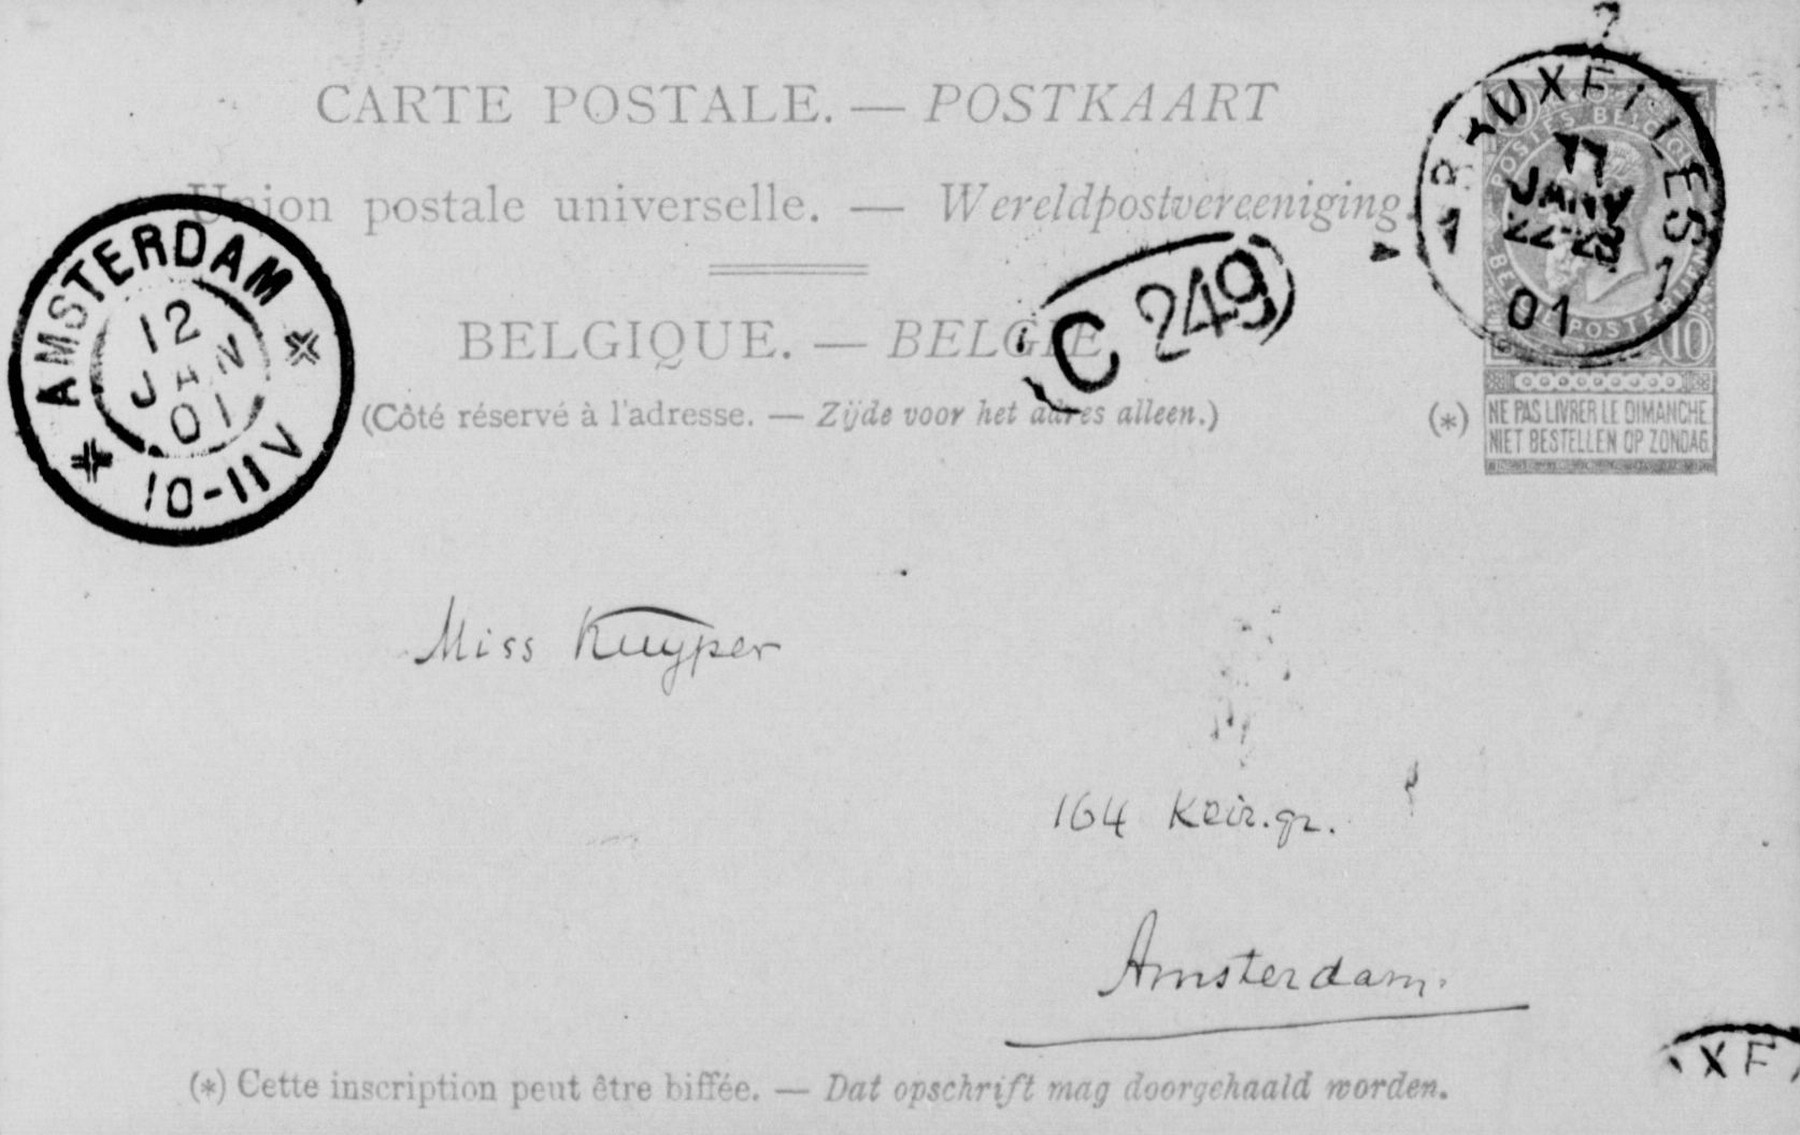 CARTE POSTALE. — POSTKAART
Union postale universelle. — Wereldpostvereeniging.
BELGIQUE. — BELGIE
(Côté réservé à l'adresse. — Zijde voor het adres alleen.)
AMSTERDAM
12
JAN
01
10-11V
C 249
BRUXELLES 1
11
JANV
22-23
01
POSTES BELGIQUE
10
(*)
NE PAS LIVRER LE DIMANCHE
NIET BESTELLEN OP ZONDAG
Miss Kuyper
164 Keiz.gr.
Amsterdam.
XE
(*) Cette inscription peut être biffée. — Dat opschrift mag doorgehaald worden.